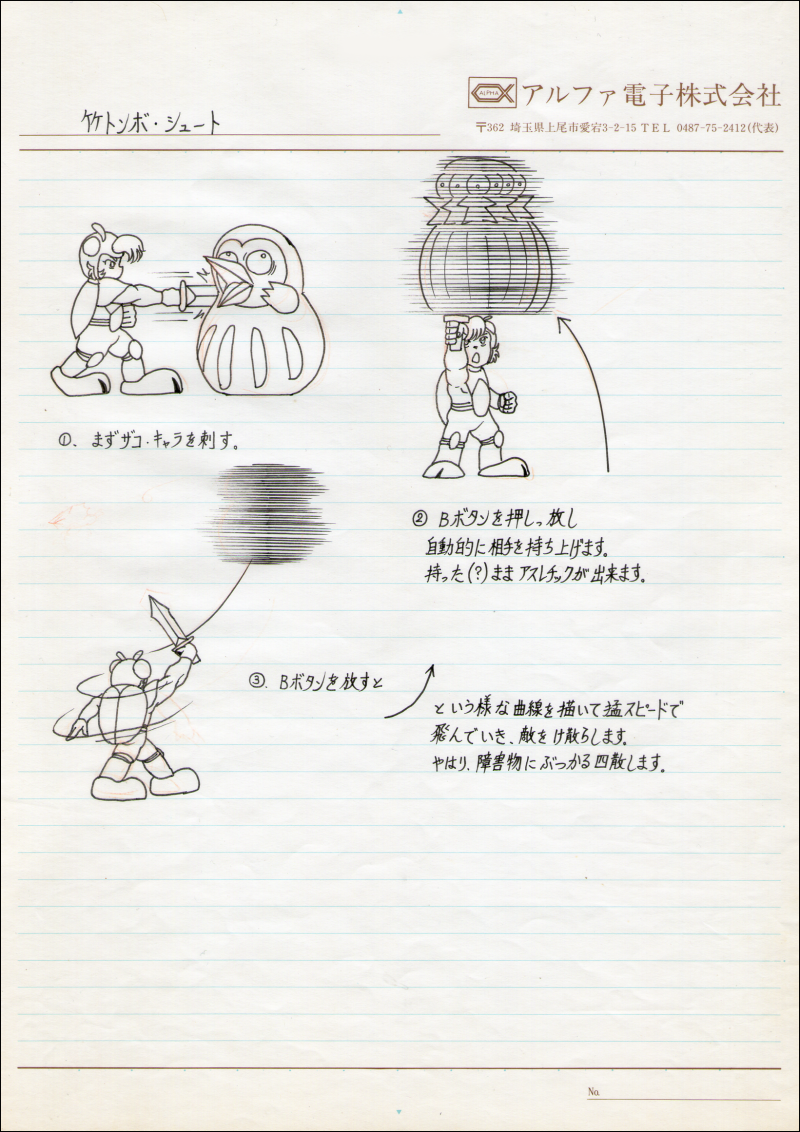 ALPHA
アルファ電子株式会社
〒362 埼玉県上尾市愛宕3-2-15 TEL 0487-75-2412(代表)
竹トンボ・シュート
①. まずザコ・キャラを刺す。
② Bボタンを押しっ放し
自動的に相手を持ち上げます。
持った(?)ままアスレチックが出来ます。
③. Bボタンを放すと
という様な曲線を描いて猛スピードで
飛んでいき、敵をけ散らします。
やはり、障害物にぶっかる四散します。
No.